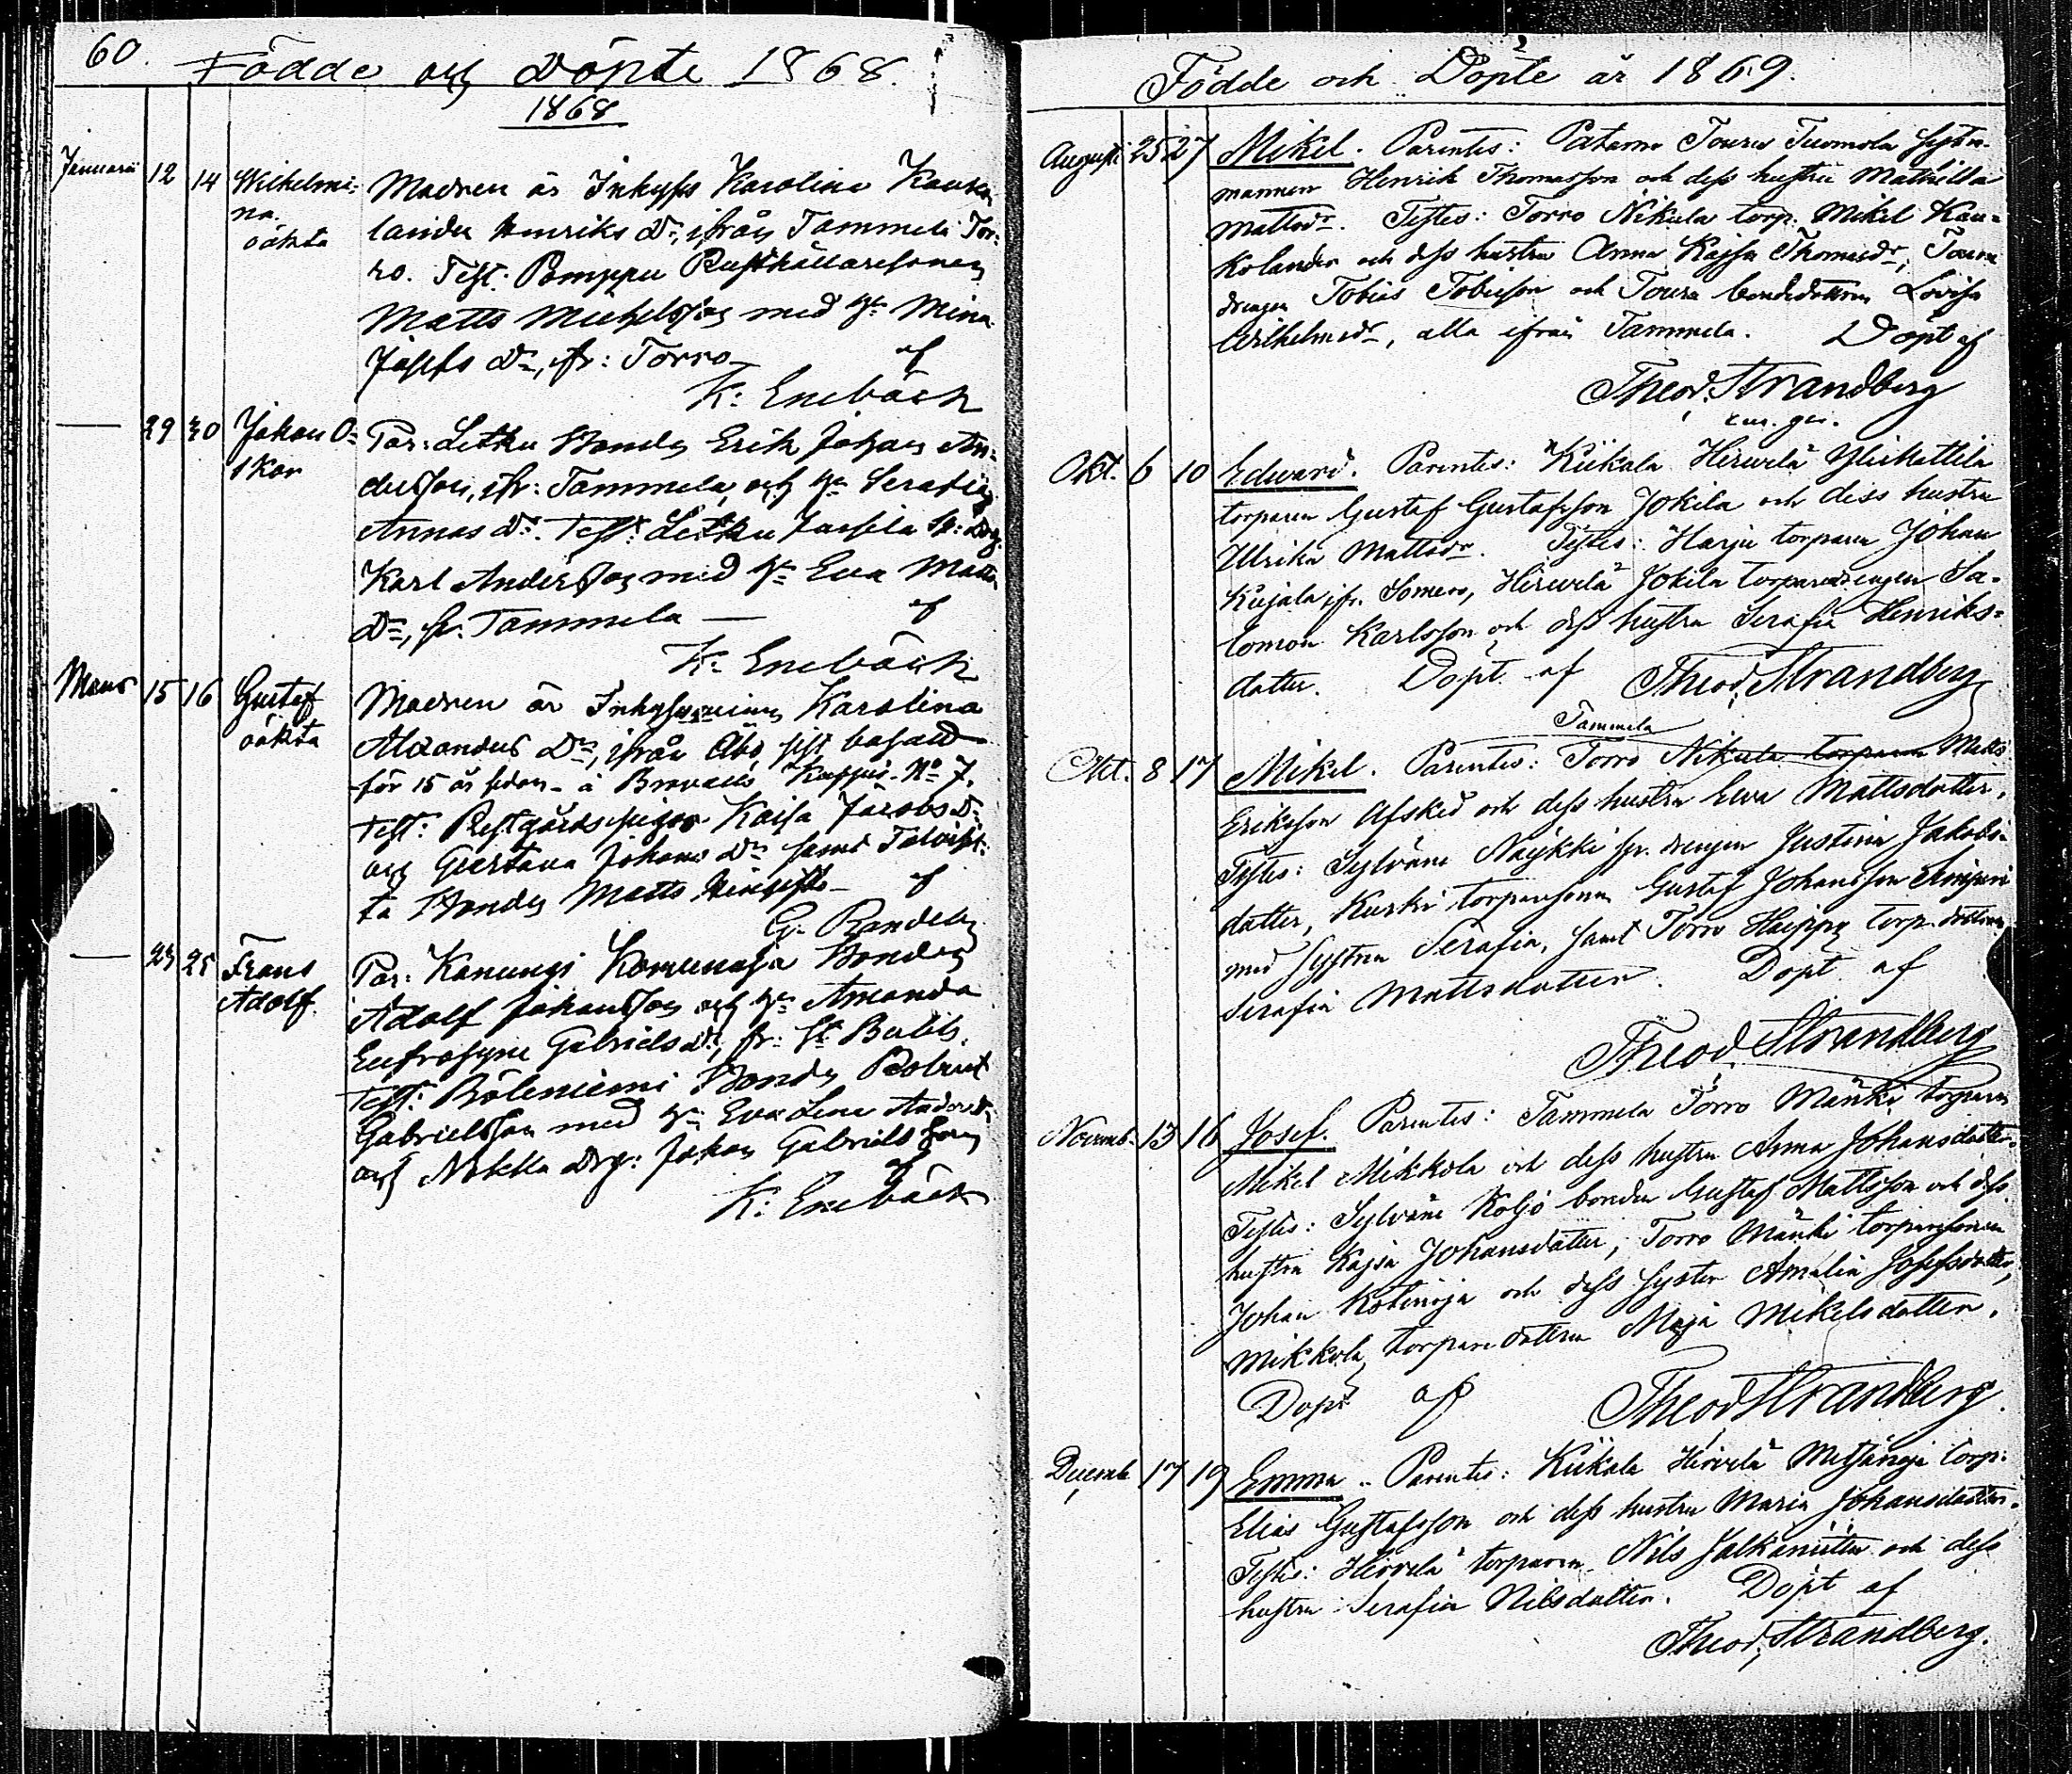 60.
Födde och Döpte 1868.
1868
Januari 12 14 Wilhelmi-
na.
oäkta
Modren är Inhyses Karolina
lander Henriks Dr, ifrån Tammela Tor-
ro. Test: Pomppu Rusthållaresonen
Matts Michelsson med Hu Mina
Josefs Dr, fr: Torro — af
K: Enebäck
— 29 30 Johan O-
skar
Par: Letku Bonden Erik Johan An-
dersson, ifr: Tammela, och Hu Serafia
Annas Dr. Test: Letku Jussila
Karl Andersson med Hu Eva Matts
Dr, fr. Tammela — af
K: Enebäck
Mars 15 16 Gustaf
oäkta
Modren är Karolina
Alexanders Dr, ifrån Åbo, sist
för 15 år sedan å No 7.
Test: Kaisa Jacobs Dr
och Gustava Johans Dr samt
ta Bonden Matts — af
G. Randelin
— 23 25 Frans
Adolf.
Par: Kanungi Bonden
Adolf Johansson och Hu Amanda
Eufrosyne Gabriels Dr, fr:
Test: Böleniemi Bonden Robert
Gabrielsson med Hu Eva Lena Anders Dr
och Nokka Drg: Johan Gabrielsson
af
K: Enebäck
Födde och Döpte år 1869.
Augusti 25 27 Mikel. Parentes: Patamo Touru Tuomola
mannen Henrik Thomasson och dess hustru Mathilda
Mattsdr. Testes: Torro Nikula torp. Mikel Kau-
kolander och dess hustru Anna Kajsa Thomasdr, Touru
drengen Tobias Tobiesson och Touru bondedottern Lovisa
Wilhelmsdr, alla ifrån Tammela. Döpt af
Theod. Strandberg
Okt. 6 10 Edward. Parentes: Kiikala Hirvelä Ylikattila
torparen Gustaf Gustafsson Jokila och dess hustru
Ulrika Mattsdr. Testes: Harju torparen Johan
Kujala ifr. Somero, Hirvelä Jokila torparedrengen Sa-
lomon Karlsson och dess hustru Serafia Henriks-
dotter. Döpt af Theod. Strandberg
Tammela
Okt. 8 17 Mikel. Parentes: Torro Nikula torparen Matts
Eriksson Afsked och dess hustru Eva Mattsdotter.
Testes: Sylväne Näykki drengen Justina Jakobs-
dotter, Kurki torparesonen Gustaf Johansson
med systern Serafia, samt Torro torp. dottren
Serafia Mattsdotter. Döpt af
Theod. Strandberg
Novemb. 13 16 Josef. Parentes: Tammela Torro Mänki torparen
Mikel Mikkola och dess hustru Anna Johansdotter.
Testes: Sylväne Koljo bonden Gustaf Mattsson och dess
hustru Kajsa Johansdotter, Torro Mänki torparesonen
Johan Kotinoja och dess syster Amalia Josefsdotter,
Mikkola torparedottren Maja Mikelsdotter.
Döpt af Theod. Strandberg.
Decemb. 17 19 Emma. Parentes: Kiikala Hirvelä Metsänoja torp:
Elias Gustafsson och dess hustru Maria Johansdotter.
Testes: Hirvelä torparen Nils och dess
hustru Serafia Nilsdotter. Döpt af
Theod. Strandberg.